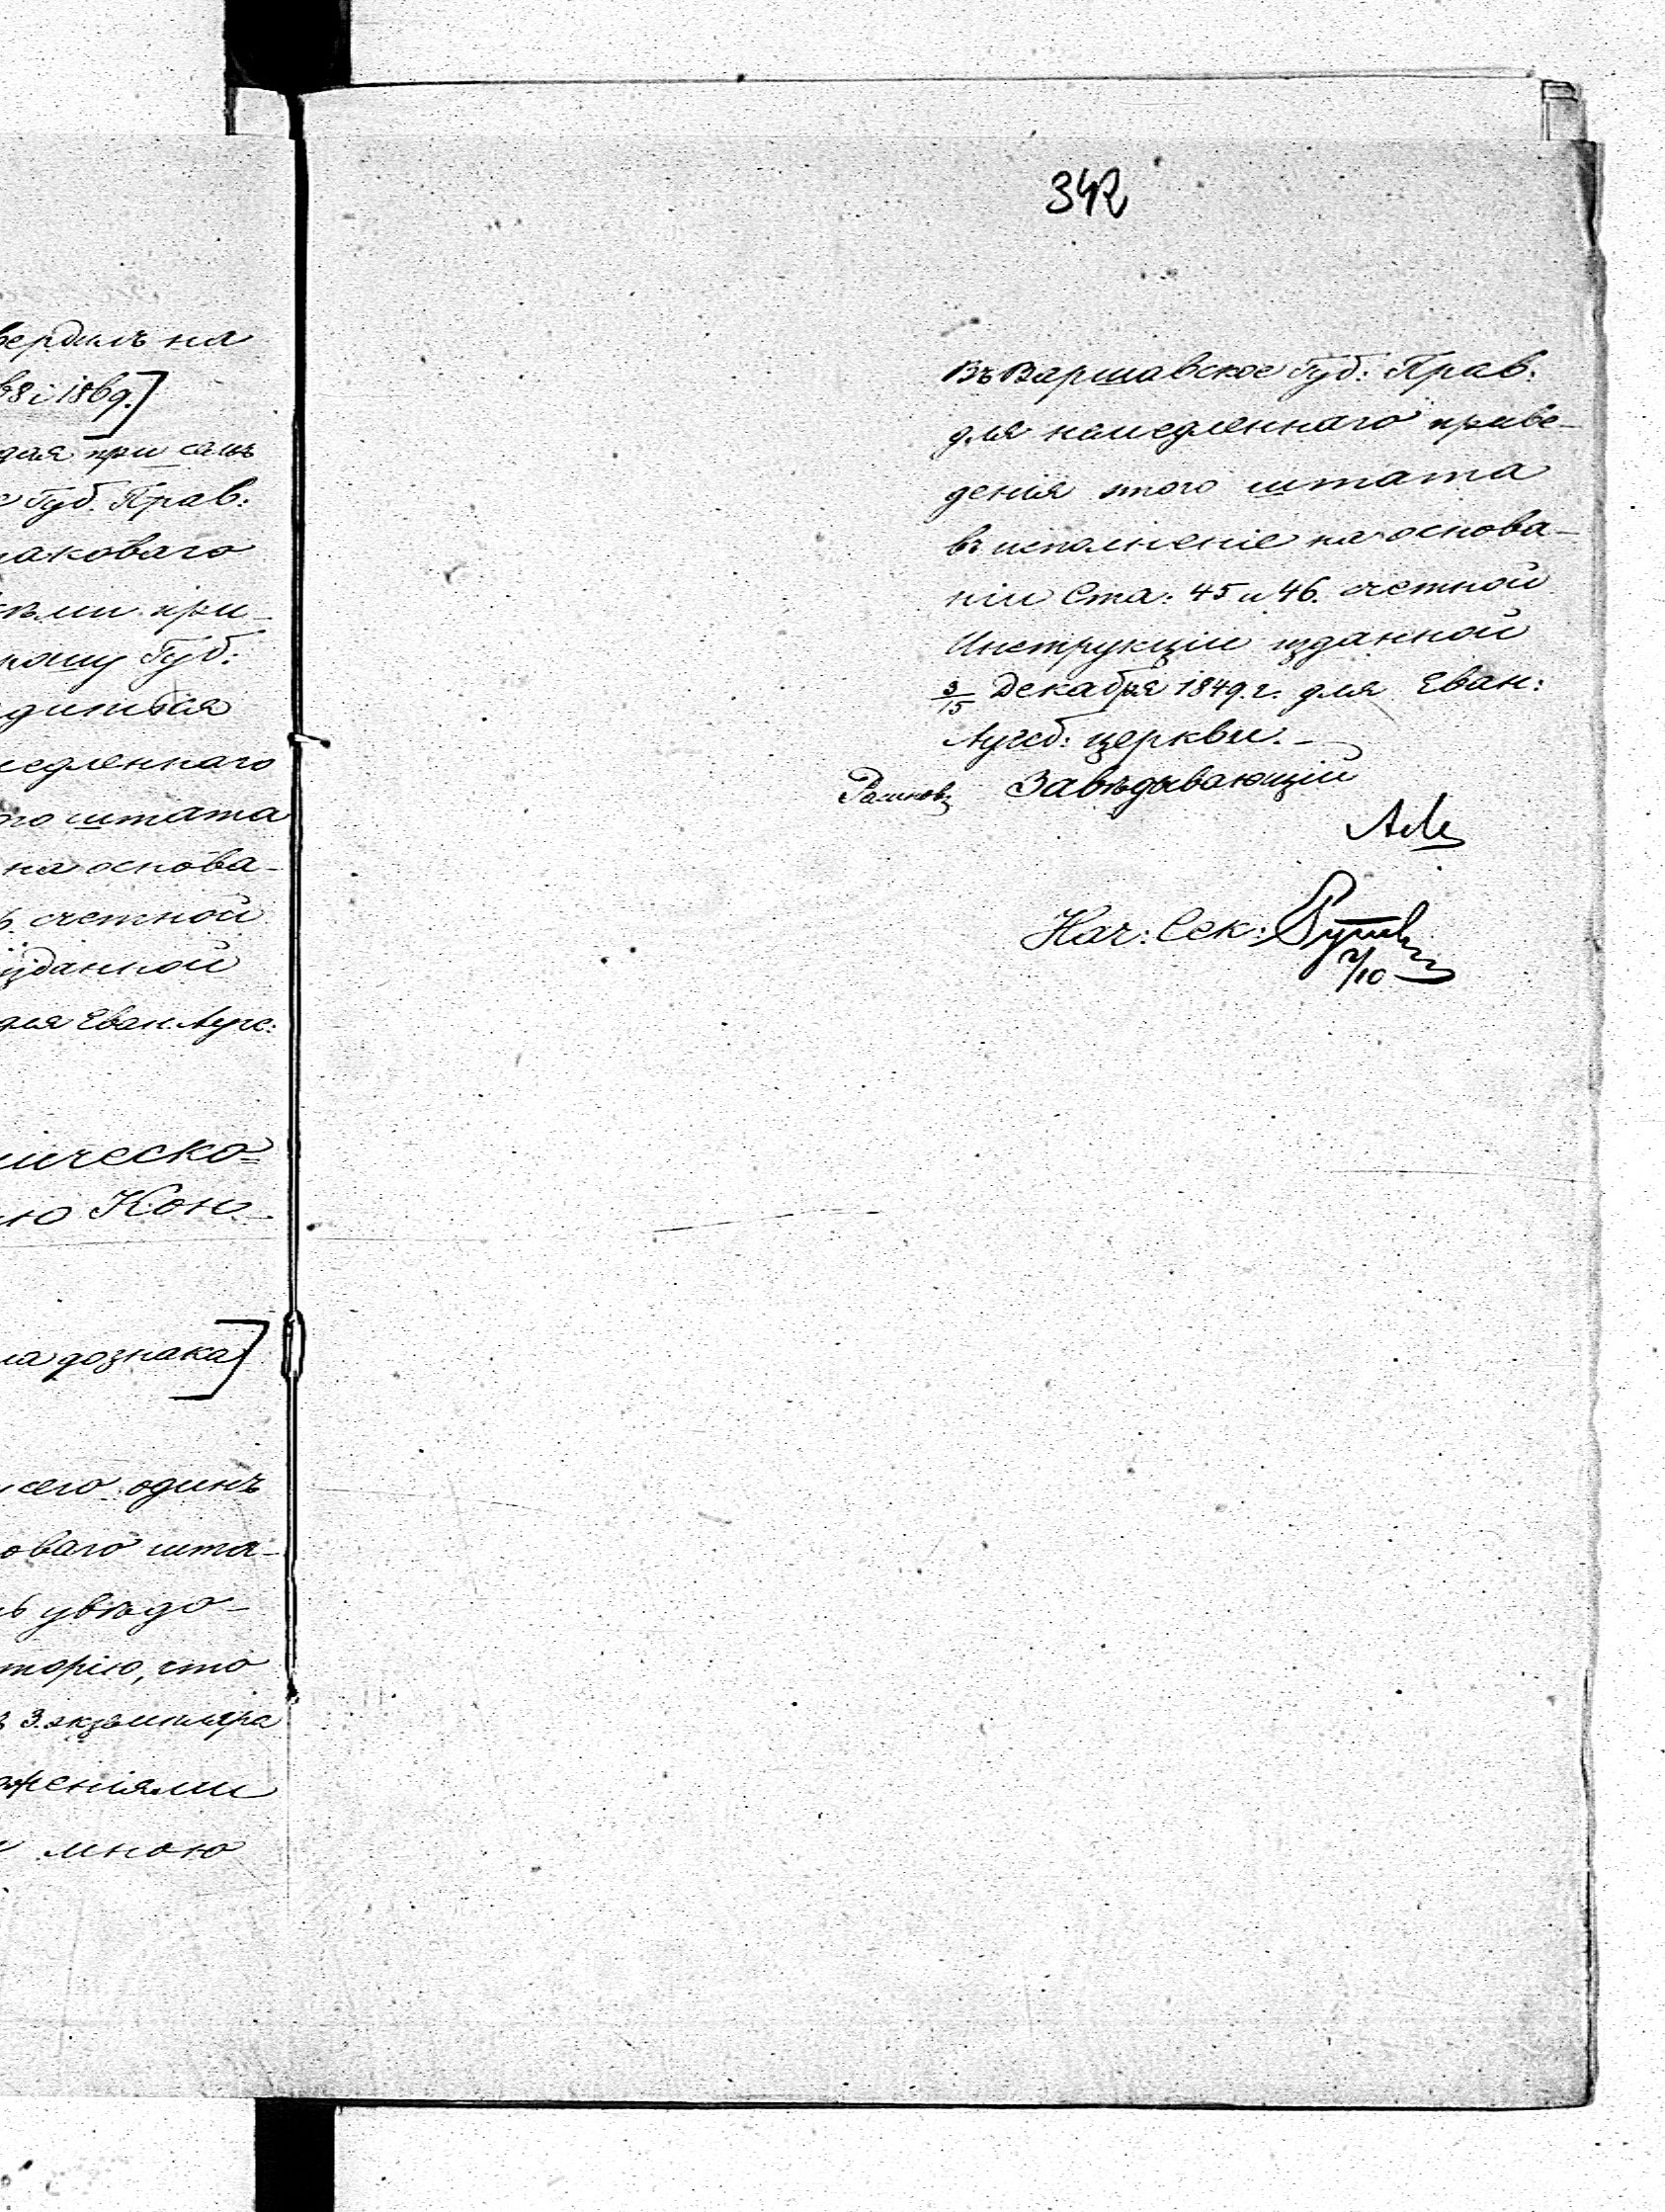 вердилъ на
868 i 1869.]
дая при семъ
Губ. Прав:
таковаго
при-
скому Губ:
дитвся
медленнаго
того штата
на основа-
счетной
изданной
для Еван. Аугс:
ическо=
ю Кон-
на дознака]
сего одинъ
оваго шта-
ь увѣдо-
торію, что
3. экземпляра
женіями
мною
342
Въ Варшавское Губ: Прав:
для немедленнаго приве-
денія этого штата
въ исполненіе на основа-
ніи Ста: 45 и 46. счетной
Инструкціи изданной
3/15 Декабря 1849. г. для Еван:
Аугсб: церкви. -
Завѣдывающій
Нач: Сек:
2/10